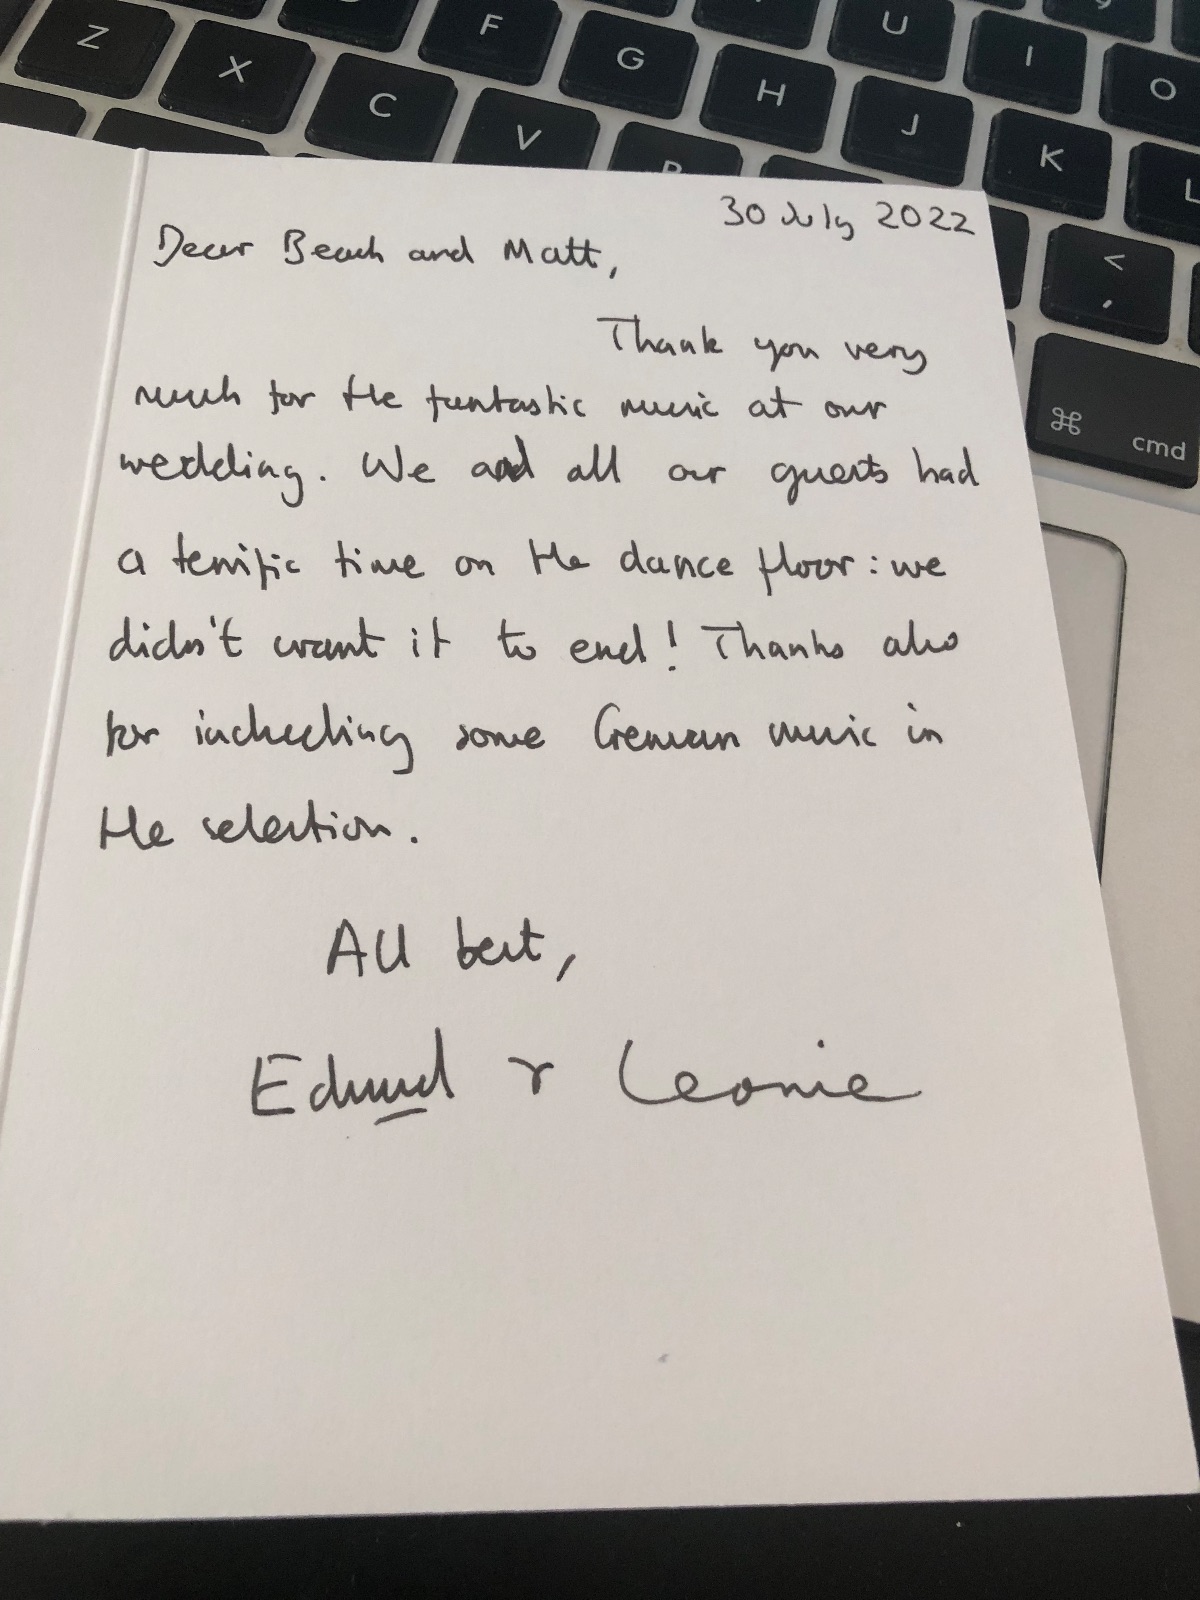 30 July 2022
Dear Beach and Matt,
Thank you very
much for the fantastic music at our
wedding. We and all our guests had
a terrific time on the dance floor: we
didn't want it to end! Thanks also
for including some German music in
the selection.
All best,
Edmund + Leonie
Z
X
C
V
F
G
B
H
J
U
K
I
<
,
O
L
⌘
cmd